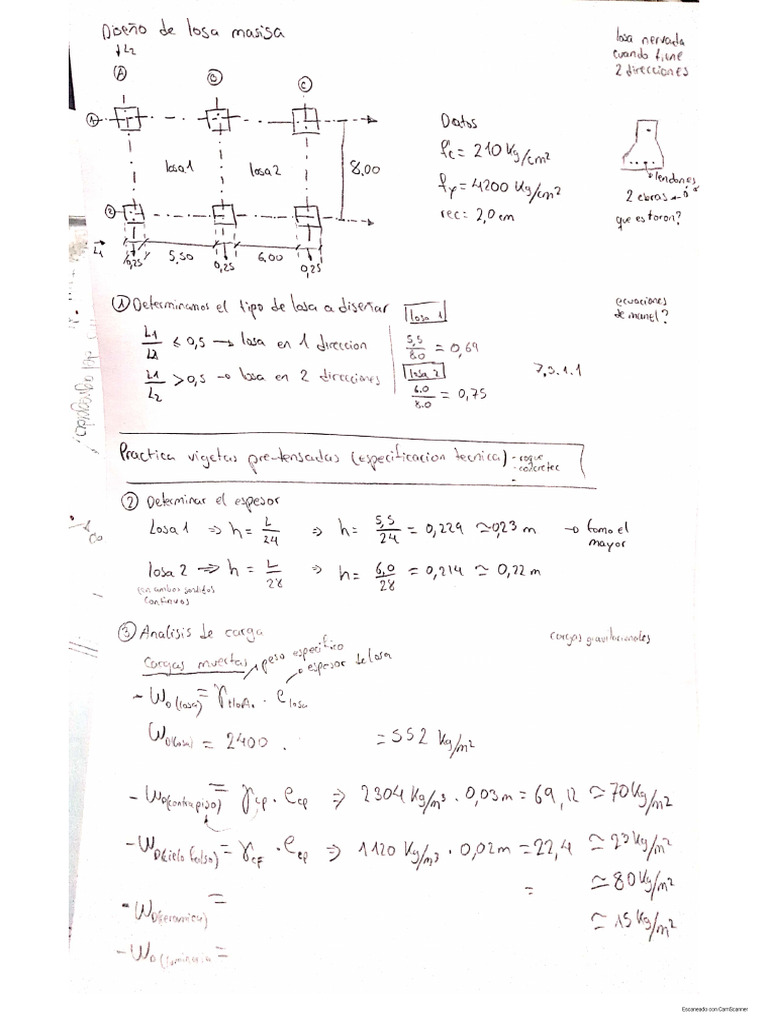 Diseño de losa masisa
↓L2
A B C
losa nervada
cuando tiene
2 direcciones
1
losa 1 losa 2 8.00
2
L1 0,25 5,50 0,25 6,00 0,25
Datos
f'c = 210 Kg/cm²
fy = 4200 Kg/cm²
rec: 2,0 cm
tendones
2 ebras
que es toron?
① Determinamos el tipo de losa a diseñar
L1/L2 ≤ 0,5 → losa en 1 direccion
L1/L2 > 0,5 → losa en 2 direcciones
losa 1
5,5/8.0 = 0,69
losa 2
6.0/8.0 = 0,75
7,3.1.1
ecuaciones
de manel?
Practica vigetas pre-tensadas (especificacion tecnica) - roque
- concretec
② Determinar el espesor
Losa 1 ⇒ h = L/24 ⇒ h = 5,5/24 = 0,229 ≃ 0,23 m → tomo el
mayor
losa 2 ⇒ h = L/28 ⇒ h = 6,0/28 = 0,214 ≃ 0,22 m
continuos
③ Analisis de carga
cargas gravitacionales
Cargas muertas peso especifico
espesor de losa
- WD(losa) = γHoAo. · e losa
WD(losa) = 2400 . = 552 Kg/m²
- WD(contrapiso) = γcp · ecp ⇒ 2304 Kg/m³ · 0,03 m = 69,12 ≃ 70 Kg/m²
- WD(cielo falso) = γcF · ecp ⇒ 1120 Kg/m³ · 0,02 m = 22,4 ≃ 23 Kg/m²
= ≃ 80 Kg/m²
- WD(ceramica) =
≃ 15 Kg/m²
- WD(luminaria =
Escaneado con CamScanner